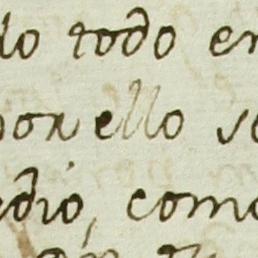 do todo en
por ello se
edio, como